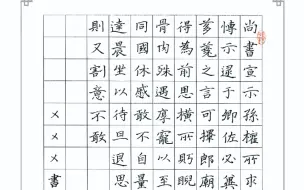 尚書宣示孫權所求
博示逮于卿佐必冀
芻蕘之言可擇郎廟
得為前恩橫所盼睨
骨肉殊遇厚寵以至
同國休慼敢不自量
達晨坐以待旦退思
則又割意不敢
×××書